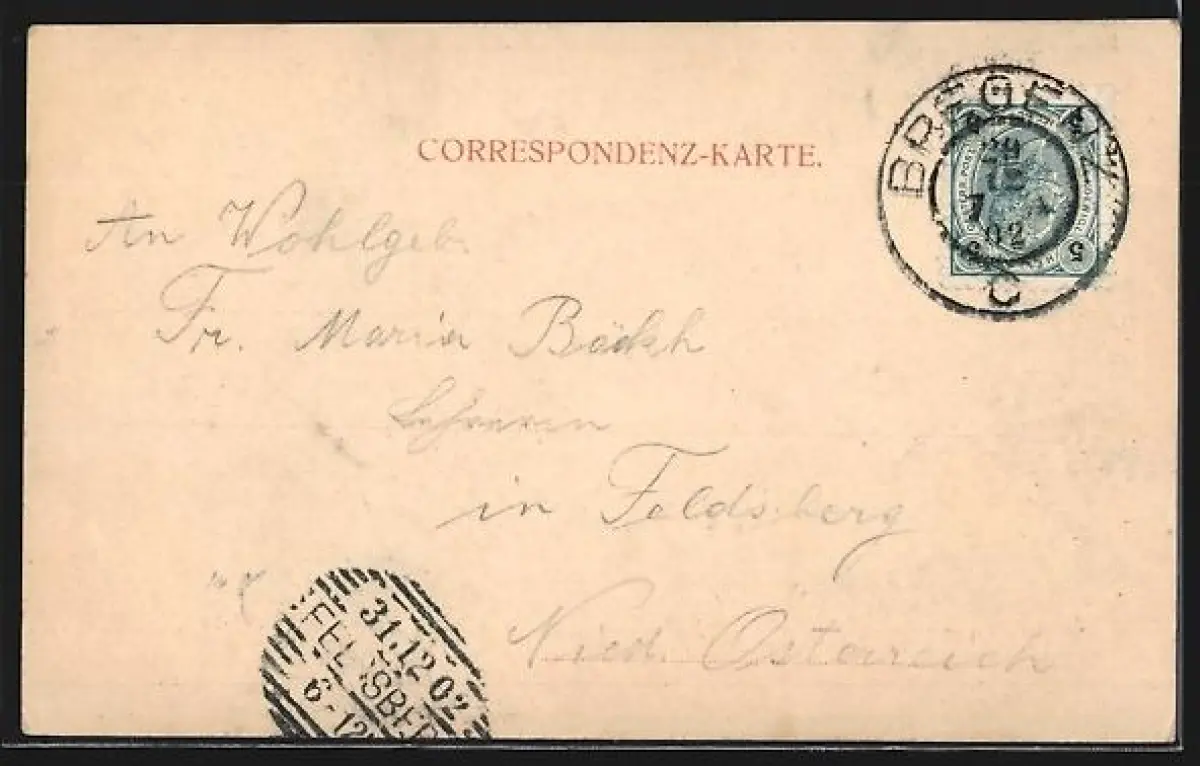 CORRESPONDENZ-KARTE.
BREGENZ
29
12
7
02
C
5
An Wohlgeb.
Fr. Maria Bäckh
in Feldsberg
Nied. Österreich
31.12 02
FELDSBER
6-12